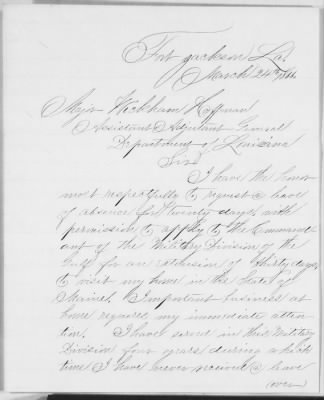 Fort Jackson La.
March 24th 1866
Major Wickham Hoffman
Assistant Adjutant General
Department of Louisiana
Sir
I have the honor
most respectfully to request a leave
of absence for twenty days with
permission to apply to the Command
ant of the Military Division of the
Gulf for an extension of thirty days
to visit my home in the State of
Maine. Important business at
home requires my immediate atten
tion. I have served in this Military
Division four years during which
time I have never received a leave
(over)